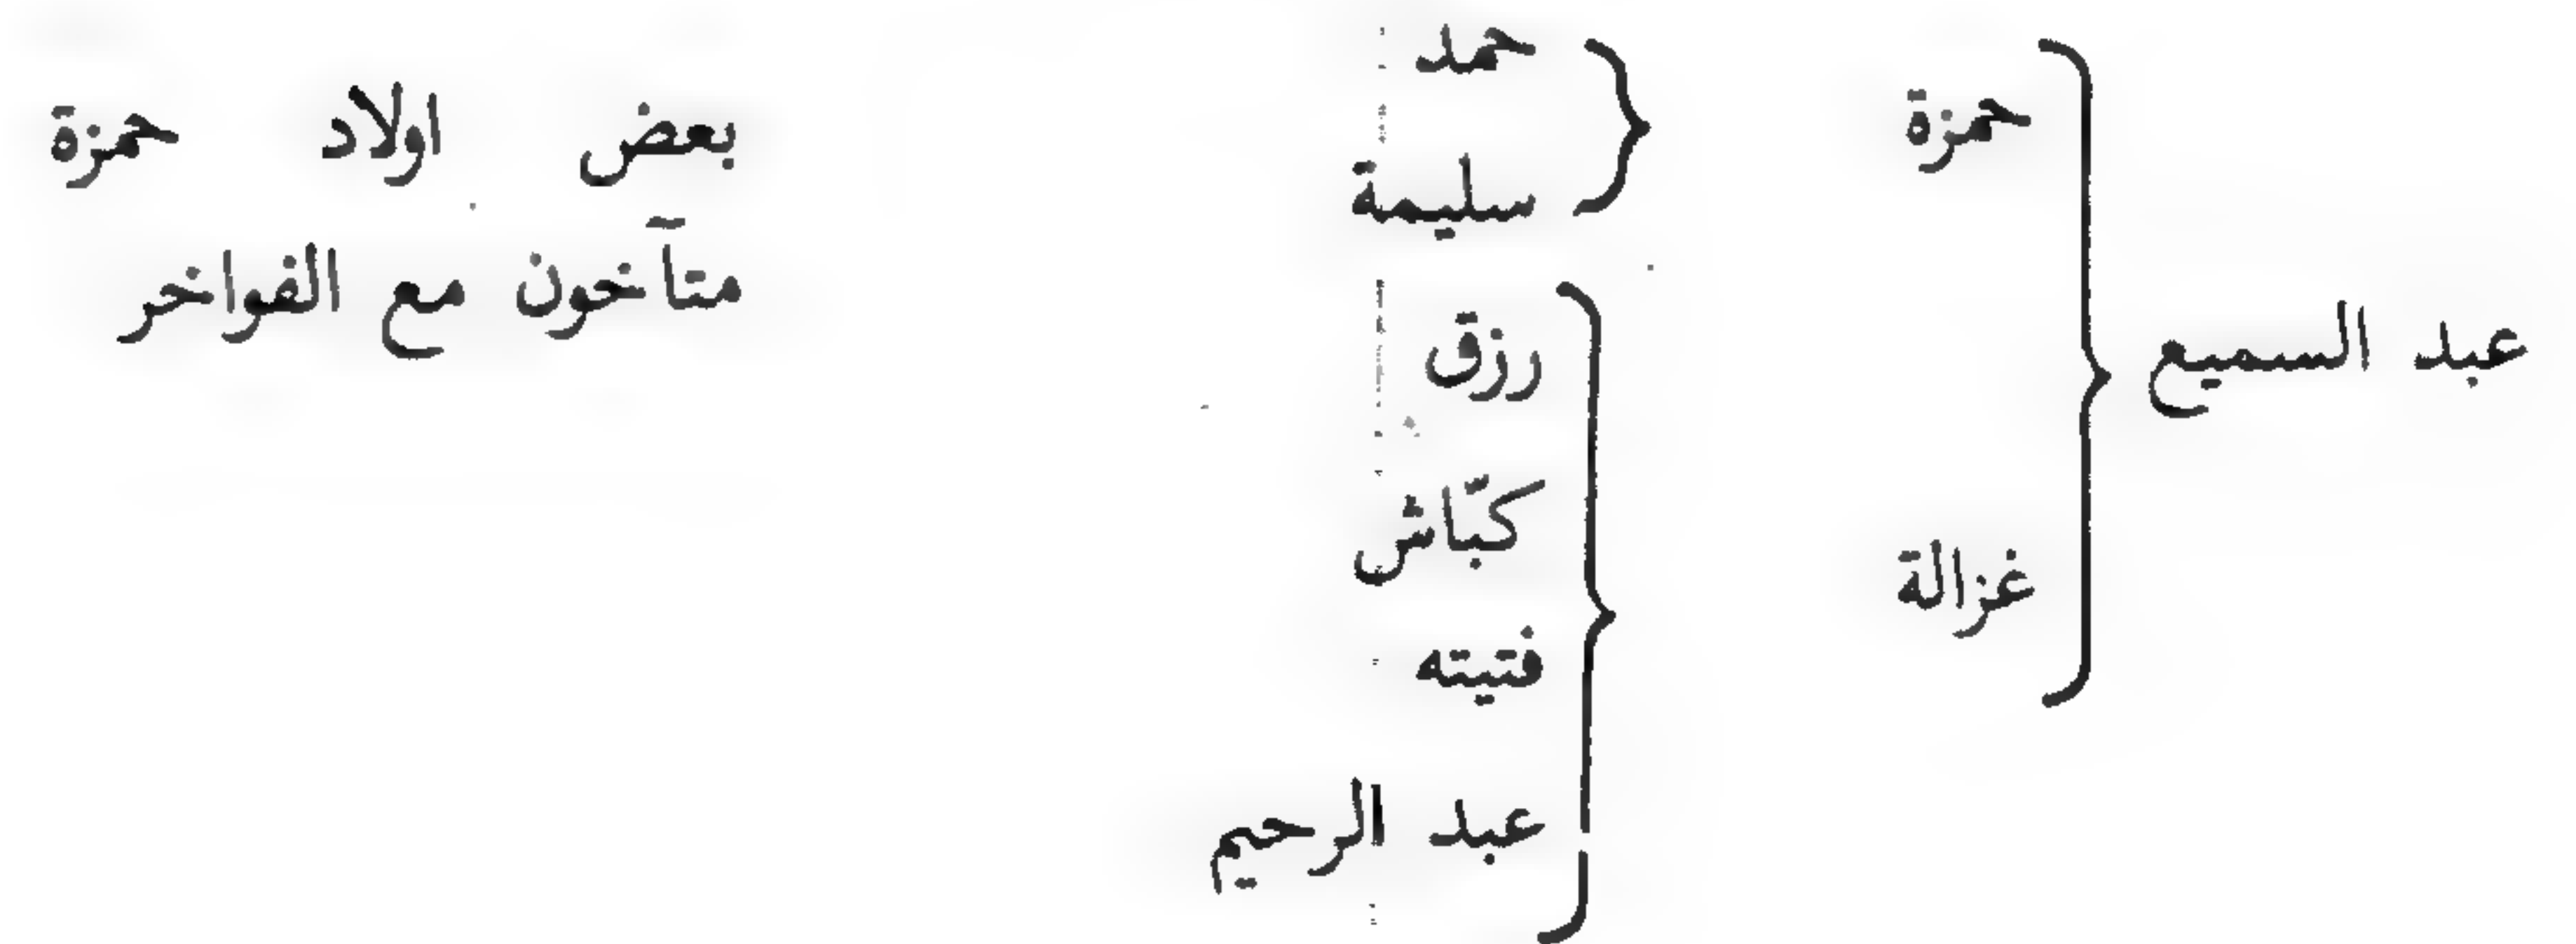 عبد السميع
حمزة
حمد
سليمة
غزالة
رزق
كبّاش
فتيته
عبد الرحيم
بعض اولاد حمزة
متآخون مع الفواخر